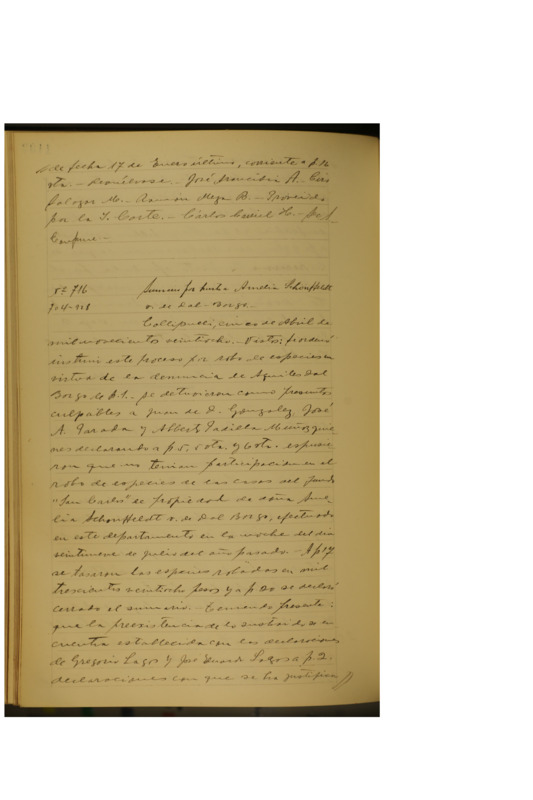 de fecha 17 de Enero último, corriente a f. 12
vta. - Devuélvase. - José Francisco A. -
Salazar M. - Ramon Meza R. - Proveido
por la I. Corte. - Cárlos H. -
Conforme. -
Sumario por hurto Amelia Schönffeldt
v. de Dal-Borgo.
Collipulli, cinco de Abril de
mil novecientos veintiocho. - Vistos; se ordenó
instruir este proceso por robo de especies en
virtud de la denuncia de Aquiles Dal
Borgo de f. 1. - se detuvieron como presuntos
culpables a Juan de D. Gonzalez, José
A. Parada y Albert. Padilla Muñoz, quie
nes declarando a f. 5, 6 vta. y 6 vta. espusie
ron que no tenian participacion en el
robo de especies de las casas del fundo
"San Carlos" de propiedad de doña Ame
lia Schonffeldt v. de Dal Borgo, efectuado
en este departamento en la noche del dia
veintinueve de Julio del año pasado. - A f. 17
se tasaron las especies robadas en mil
trescientos veintiocho pesos y a f. 20 se declaró
cerrado el sumario. - Tomando presente:
que la preexistencia de lo sustraido se en
cuentra establecida con las declaraciones
de Gregorio Lagos y José Eduardo Lagos a f. 2.
declaraciones con que se ha justifica